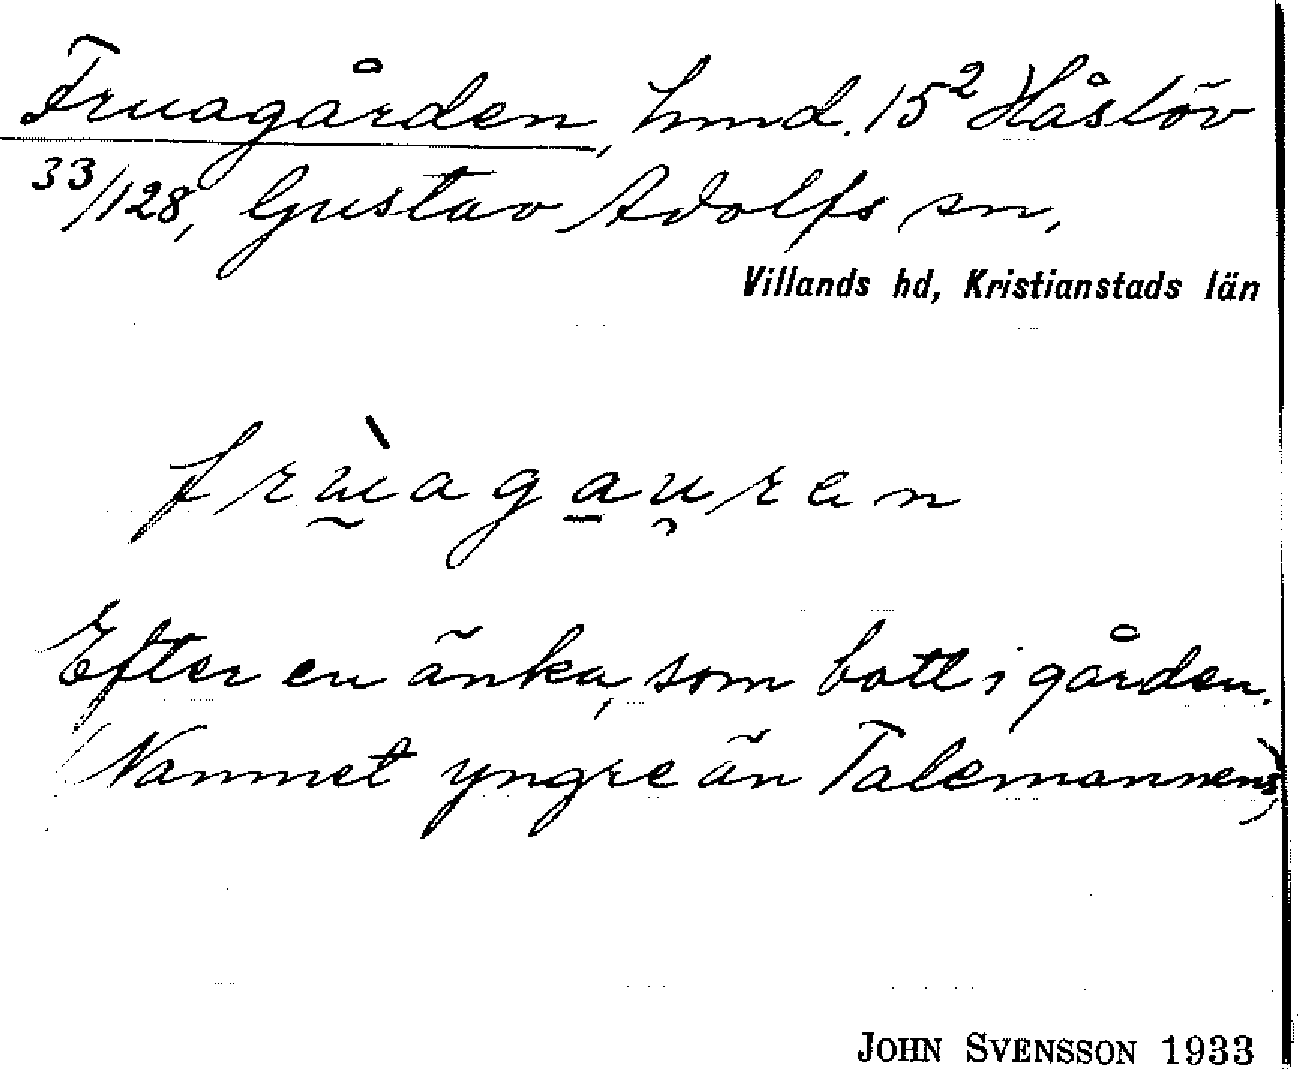 Fruagården, hmd. 15² Håslöv
33/128, Gustav Adolfs sn,
Villands hd, Kristianstads län
frùagau̯ran
Efter en änka, som bott i gården.
(Namnet yngre än Talemannens)
JOHN SVENSSON 1933